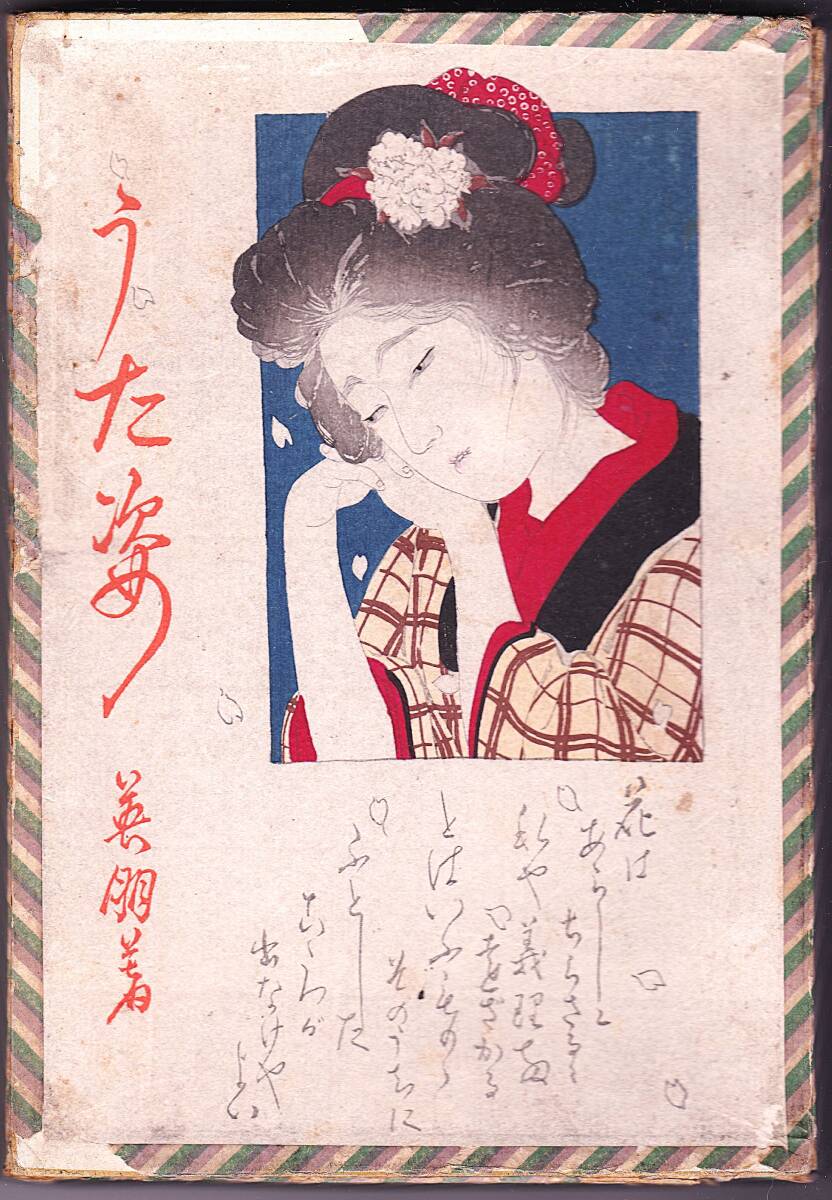 うた姿
英朋著
花は
あらしに
ちらさるゝ
私や義理故
遠ざかる
とはいふものゝ
そのうちに
ふとした
こゝろが
出なけやよい